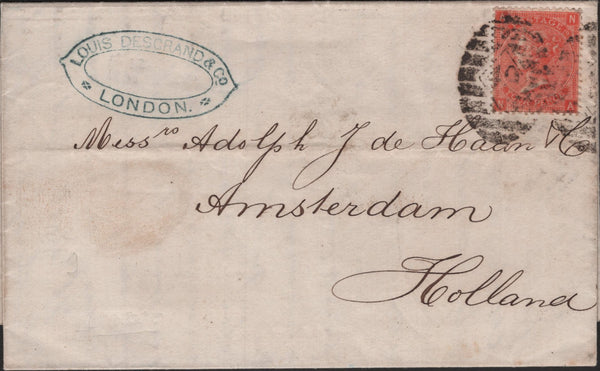 LOUIS DESGRAND & Co.
LONDON.
POSTAGE
N
A
Messrs Adolph J de Haan & Co
Amsterdam
Holland